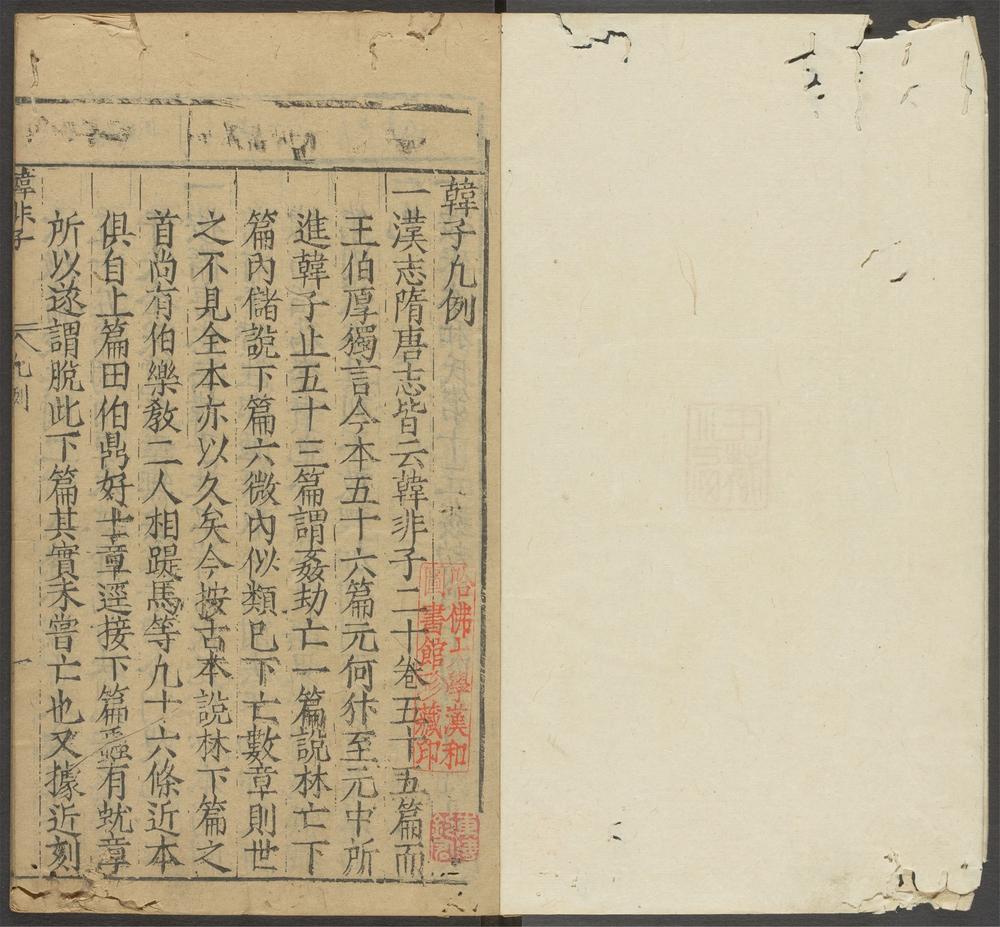 韓子凡例
一漢志隋唐志皆云韓非子二十卷五十五篇而
王伯厚獨言今本五十六篇元何犿至元中所
進韓子止五十三篇謂姦劫亡一篇說林亡下
篇內儲說下篇六微內似類已下亡數章則世
之不見全本亦以久矣今按古本說林下篇之
首尚有伯樂敎二人相踶馬等凡十六條近本
俱自上篇田伯鼎好士章逕接下篇蟲有蚘章
所以遂謂脫此下篇其實未嘗亡也又據近刻
韓非子
凡例
一
哈佛大學漢和
圖書館珍藏印